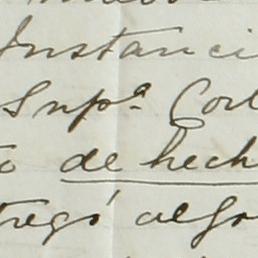 Instanci
Supª. Cort
to de hech
tregó algo